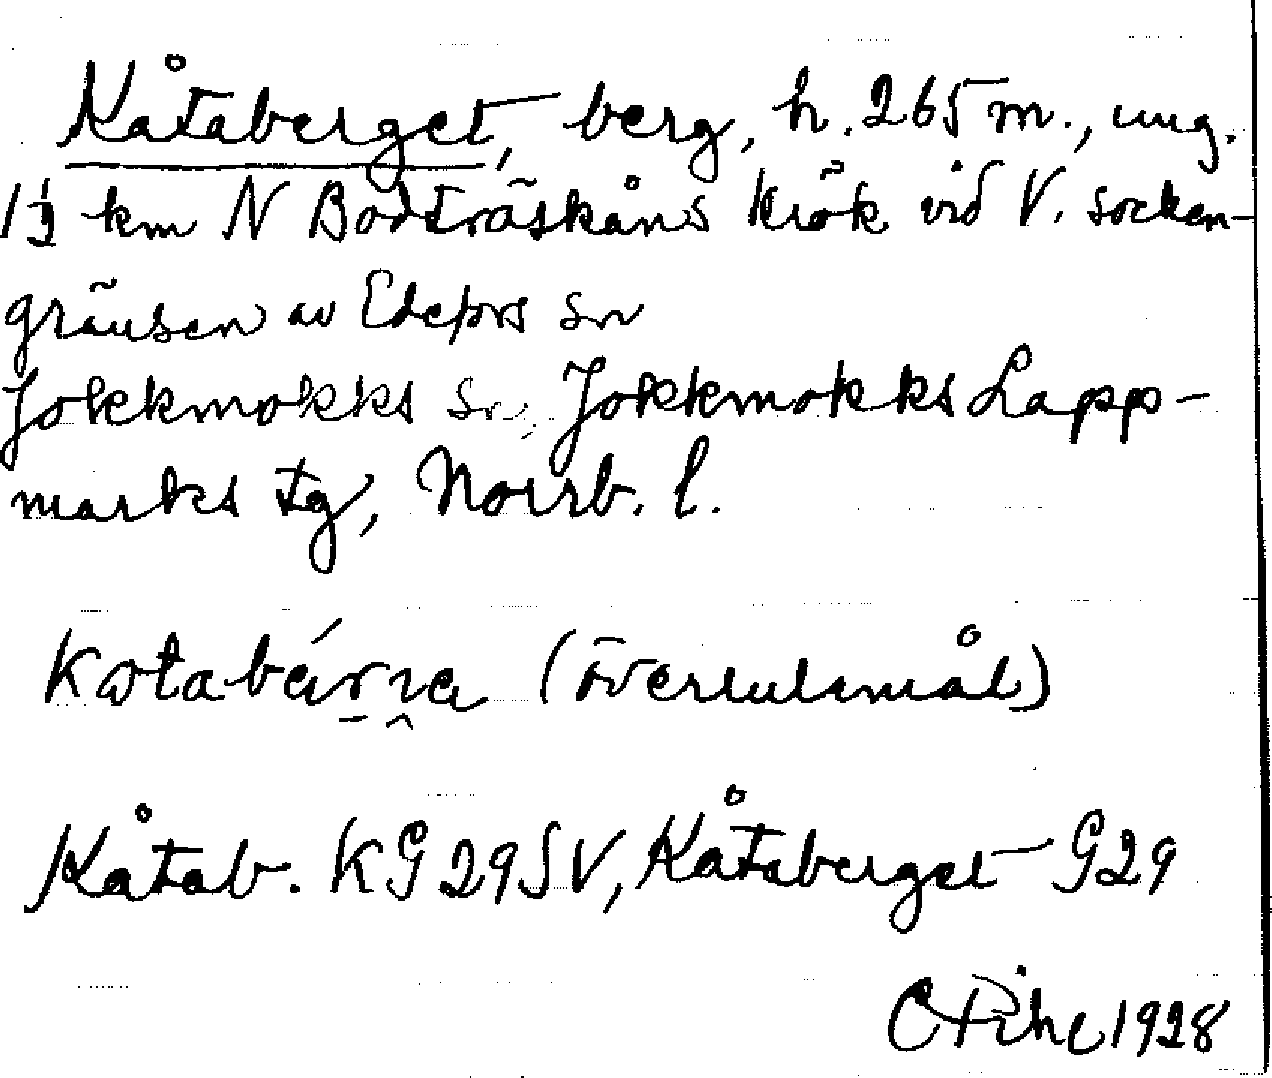 Kåtaberget, berg, h. 265 m., ung.
1½ km N Bodträskåns krök vid V. socken-
gränsen av Edefors sn
Jokkmokks sn, Jokkmokks Lapp-
marks tg, Norrb. l.
(överlulemål)
Kåtab. KG 29 SV, Kåtaberget G29
C Pihl 1928